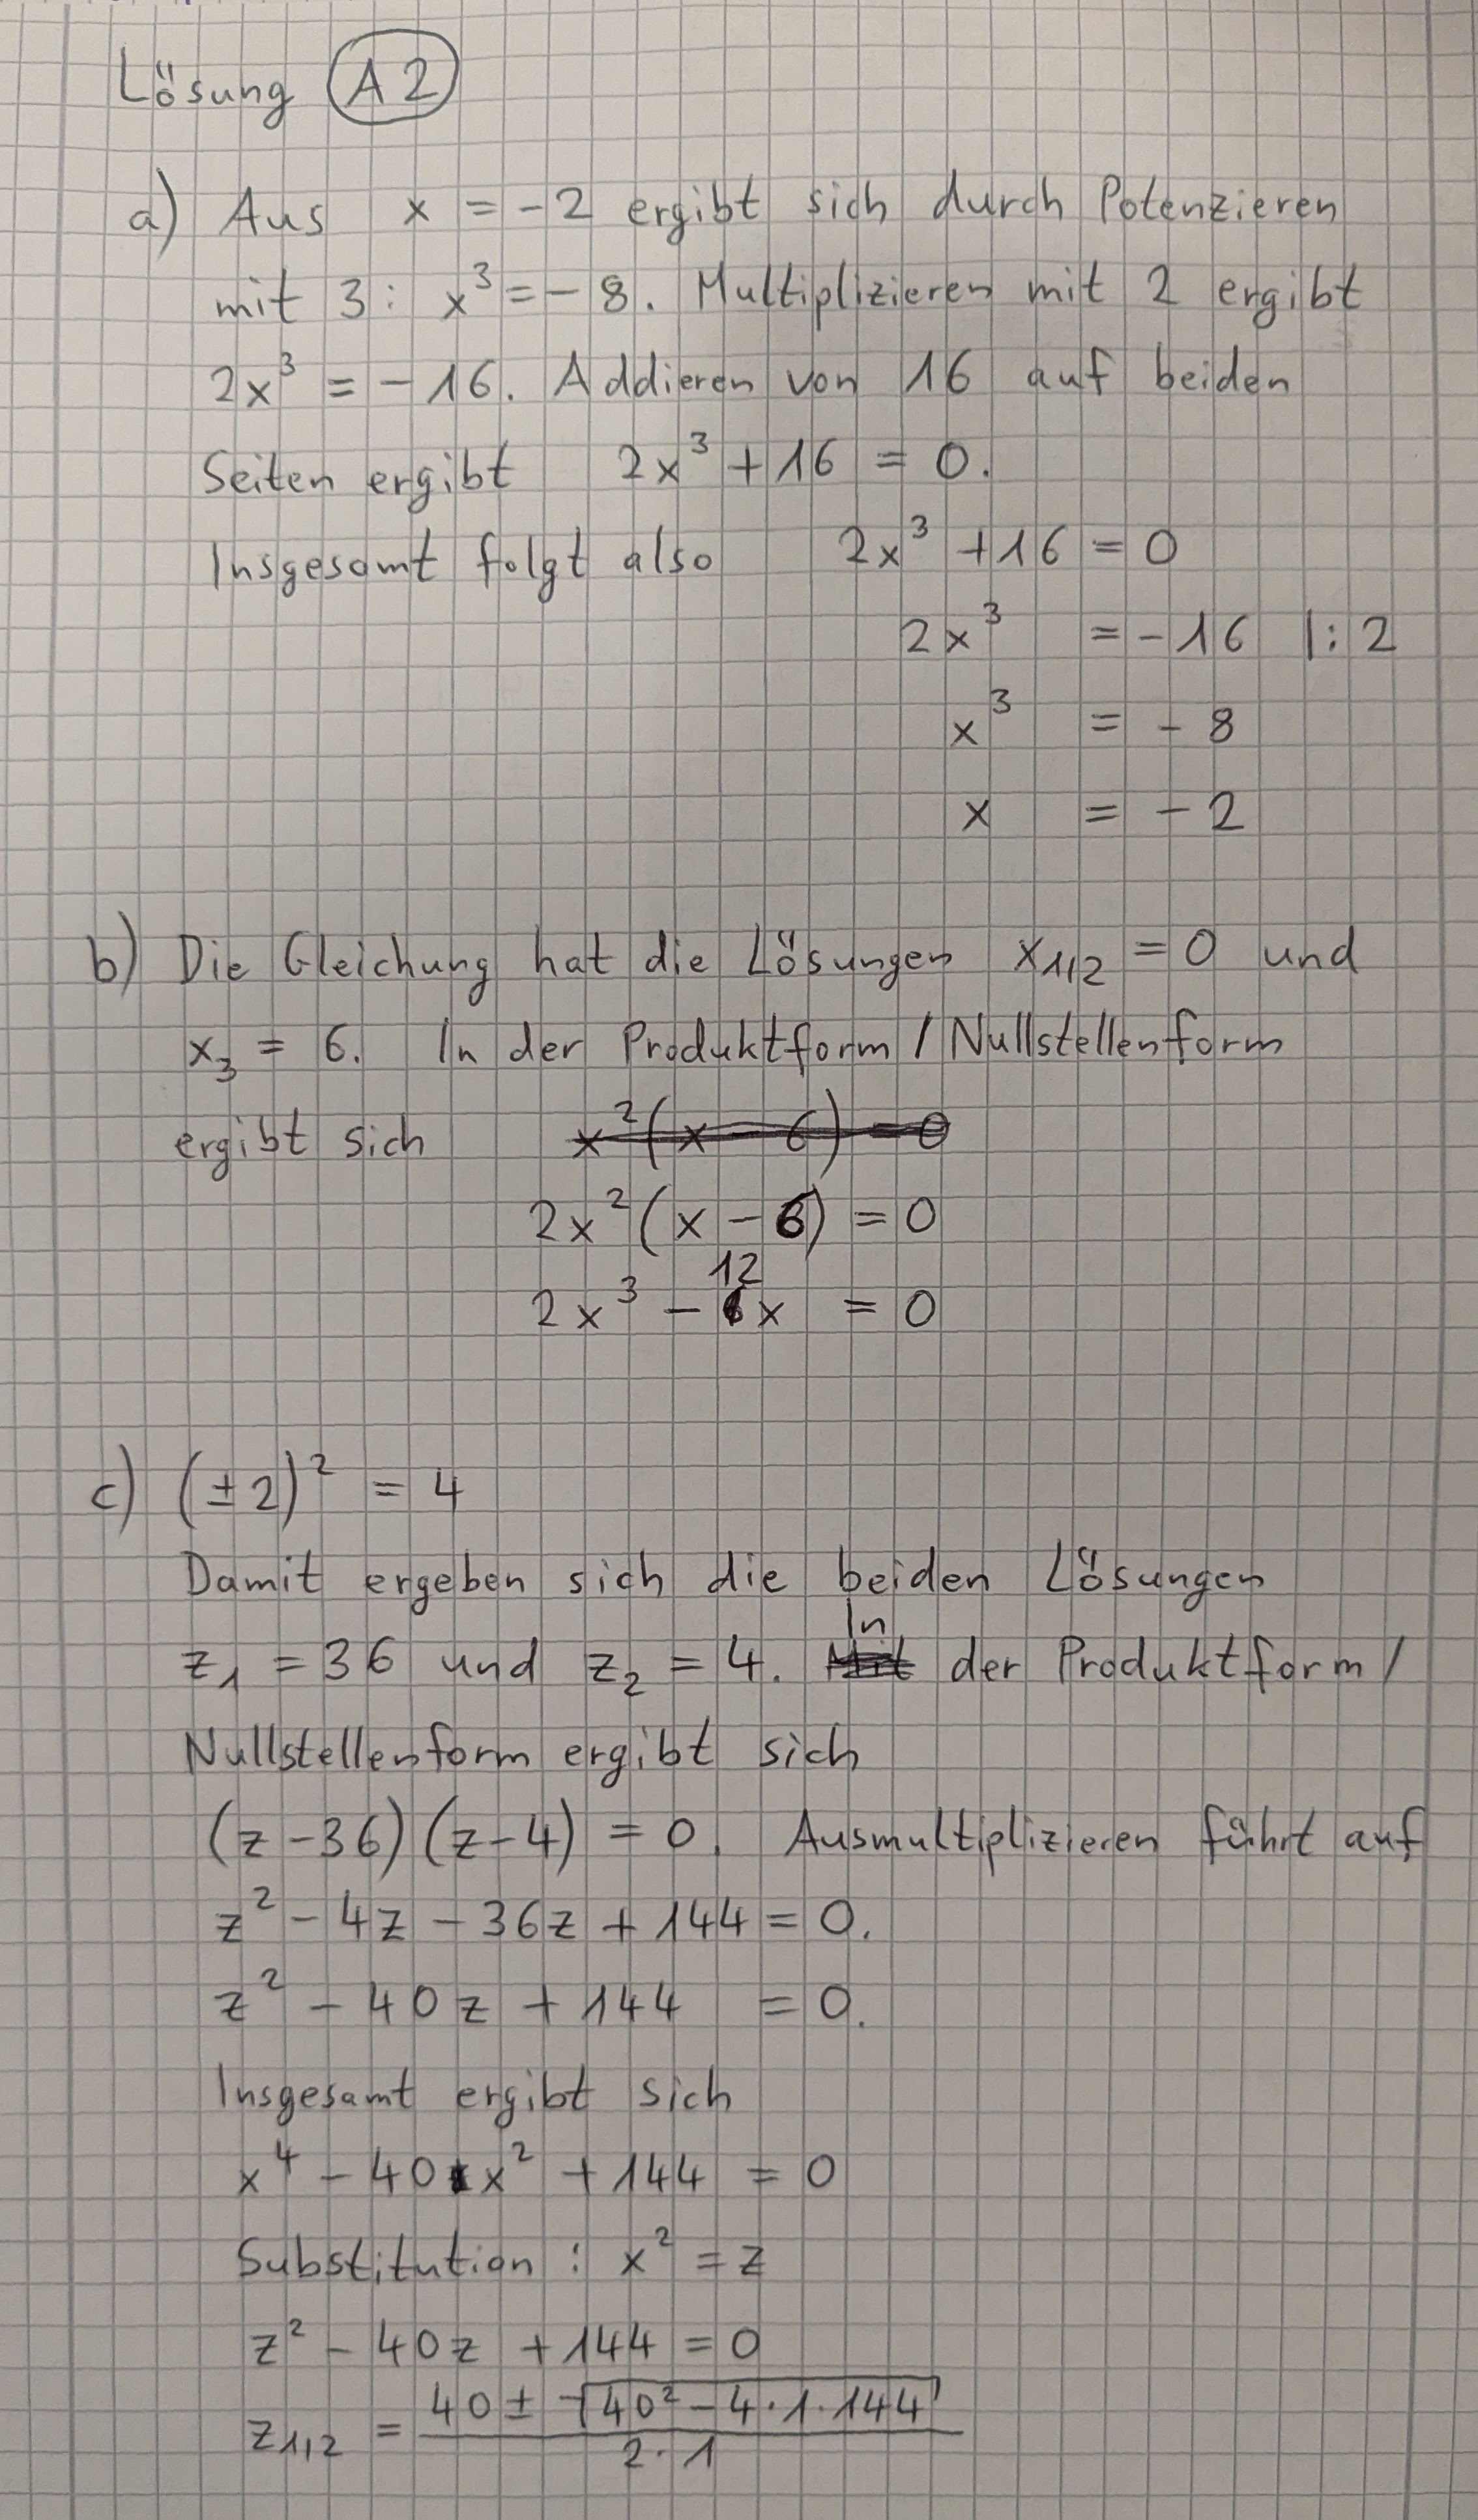 Lösung A2
a) Aus x = -2 ergibt sich durch Potenzieren
mit 3: x³ = -8. Multiplizieren mit 2 ergibt
2x³ = -16. Addieren von 16 auf beiden
Seiten ergibt 2x³ + 16 = 0.
Insgesamt folgt also 2x³ + 16 = 0
2x³ = -16 |: 2
x³ = -8
x = -2
b) Die Gleichung hat die Lösungen x₁,₂ = 0 und
x₃ = 6. In der Produktform / Nullstellenform
ergibt sich x²(x - 6) = 0
2x²(x - 6) = 0
2x³ - 12x = 0
c) (±2)² = 4
Damit ergeben sich die beiden Lösungen
z₁ = 36 und z₂ = 4. In der Produktform /
Nullstellenform ergibt sich
(z - 36)(z - 4) = 0. Ausmultiplizieren führt auf
z² - 4z - 36z + 144 = 0.
z² - 40z + 144 = 0.
Insgesamt ergibt sich
x⁴ - 40x² + 144 = 0
Substitution: x² = z
z² - 40z + 144 = 0
z₁,₂ = (40 ± √(40² - 4·1·144)) / (2·1)